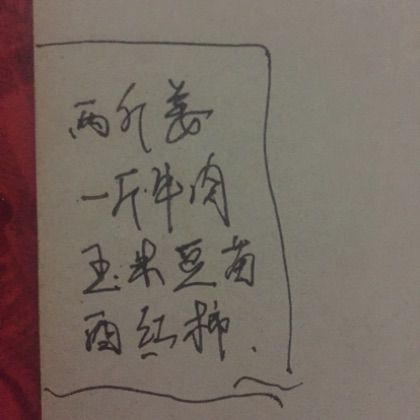 两斤姜
一斤牛肉
玉米豆苗
西红柿.